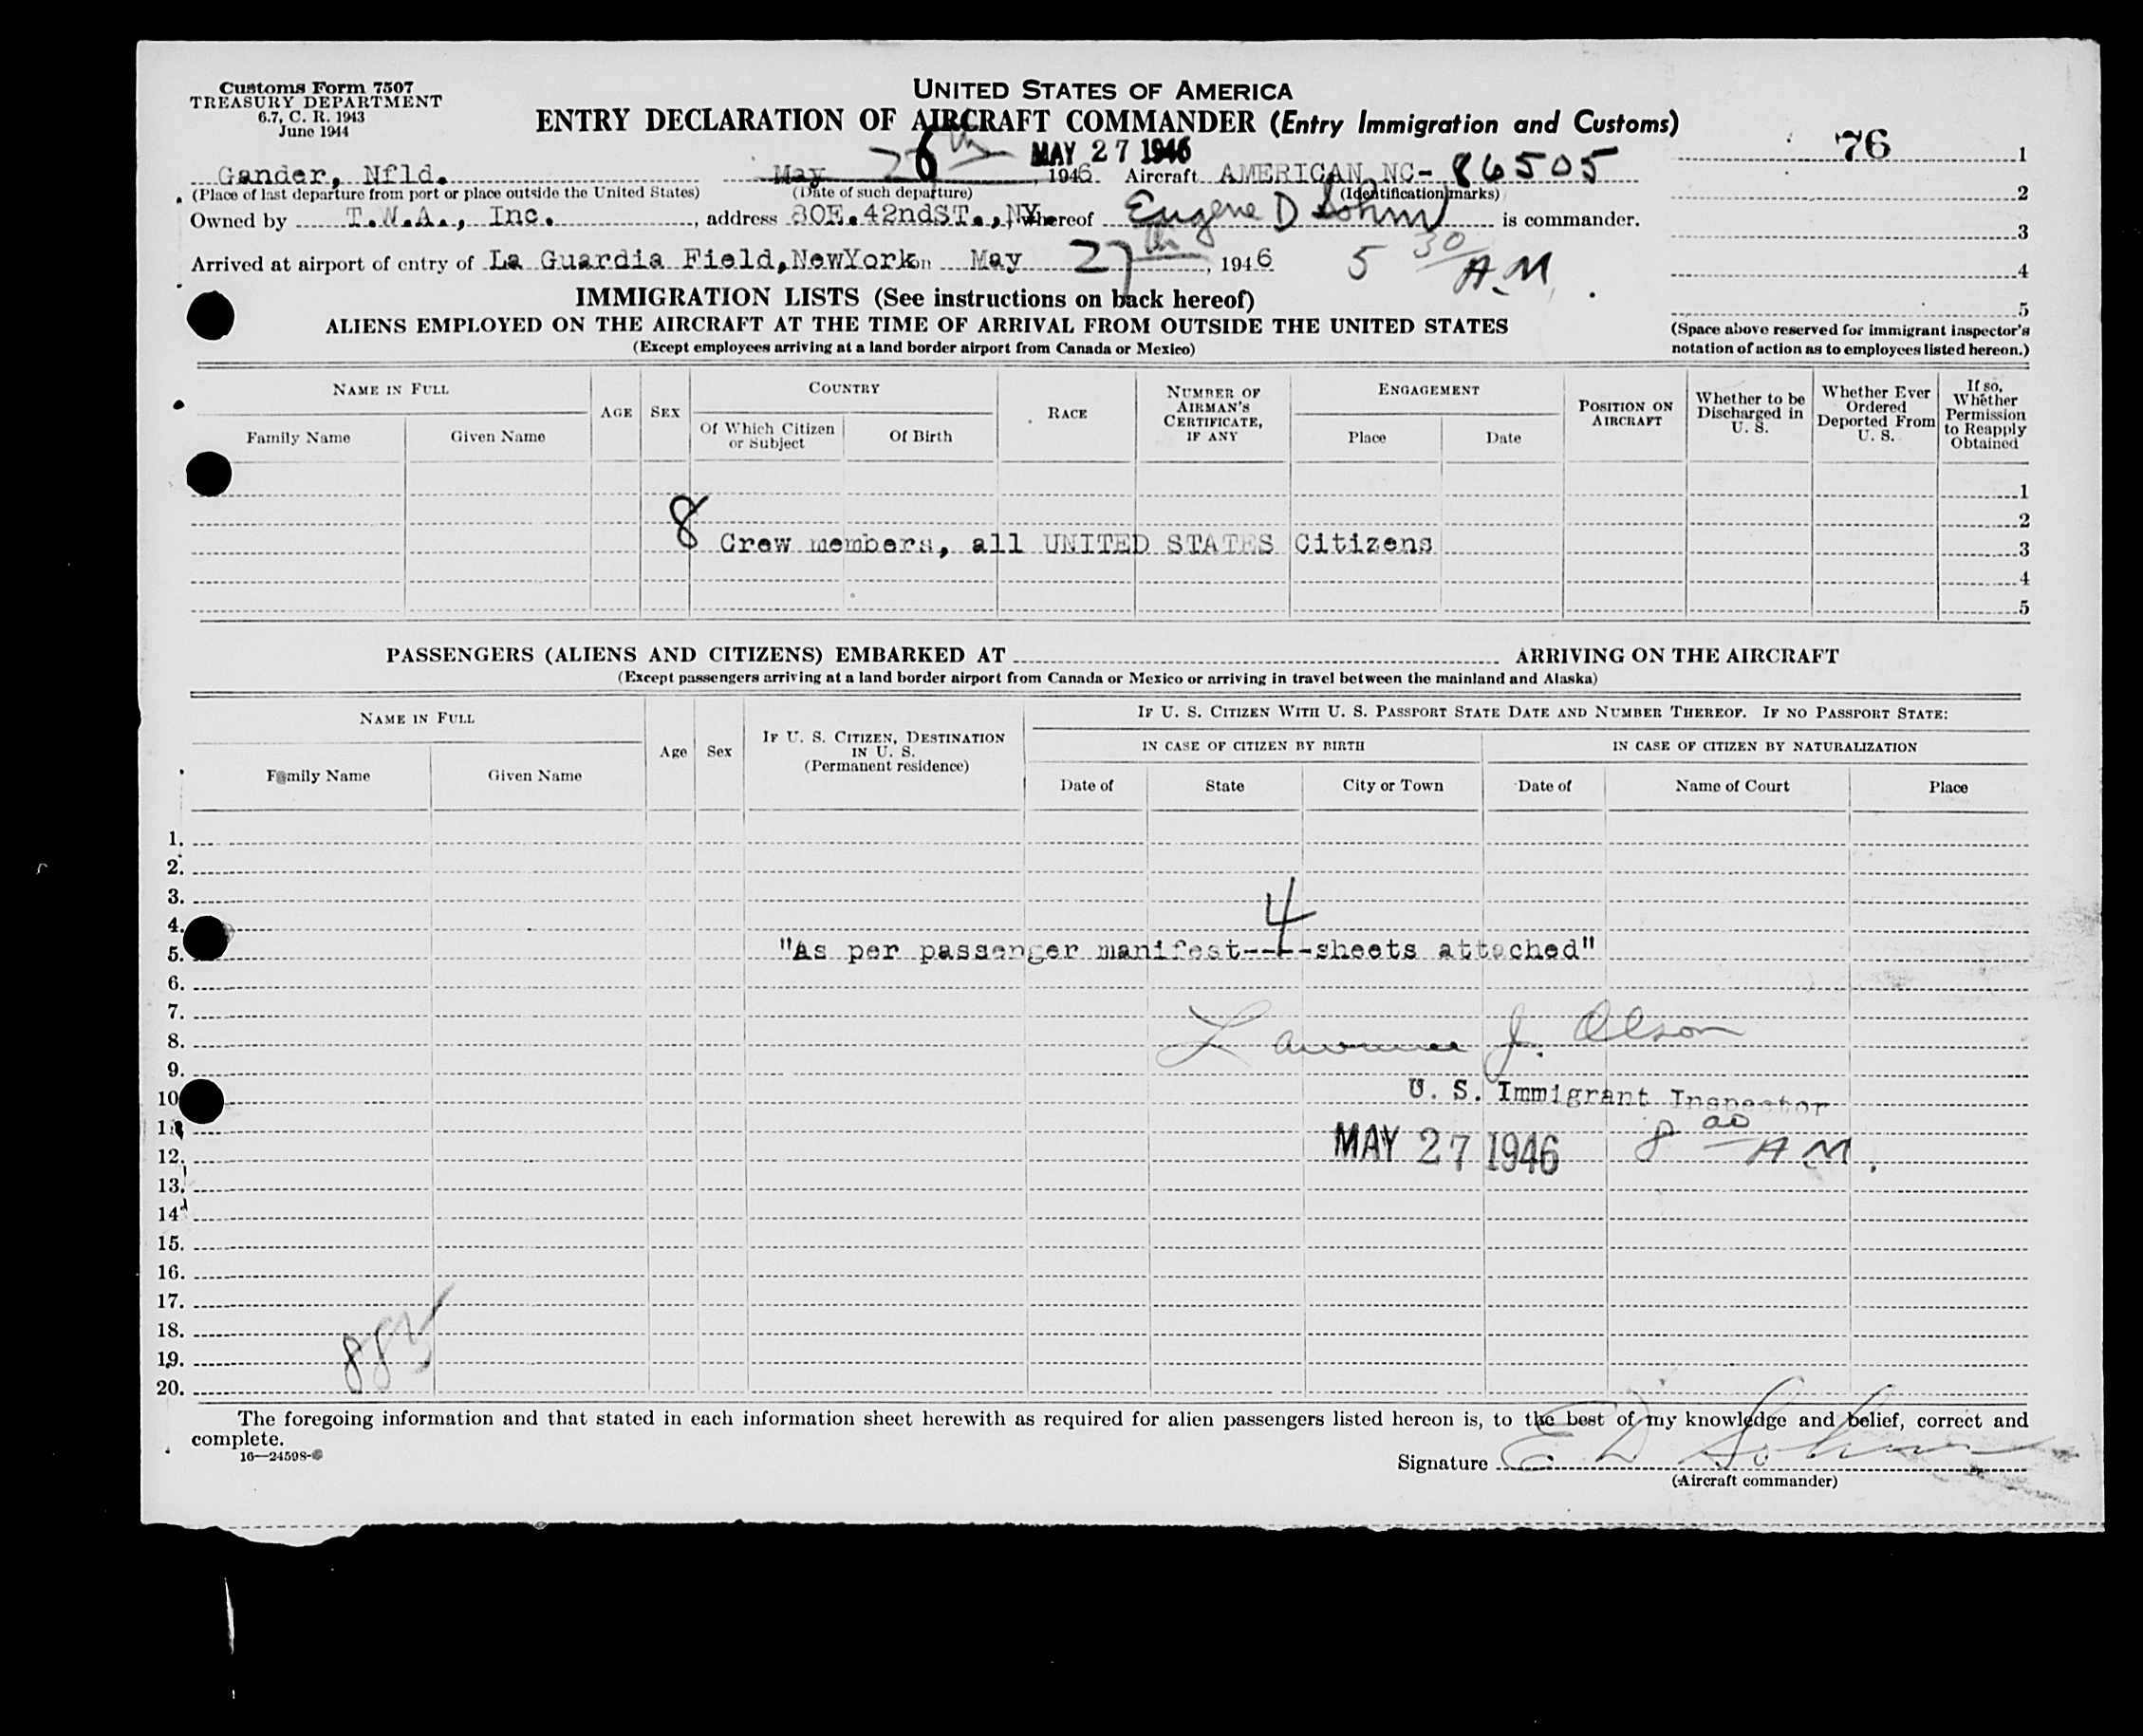 Customs Form 7507
TREASURY DEPARTMENT
6.7, C. R. 1943
June 1944
UNITED STATES OF AMERICA
ENTRY DECLARATION OF AIRCRAFT COMMANDER (Entry Immigration and Customs)
MAY 27 1946
76 1
Gander, Nfld. May 26th, 1946. Aircraft AMERICAN NC- 86505
(Place of last departure from port or place outside the United States) (Date of such departure) (Identification marks)
2
Owned by T.W.A., Inc., address 80E.42ndST.,NY whereof Eugene D is commander.
3
Arrived at airport of entry of La Guardia Field, NewYork on May 27th, 1946 5 30 A.M.
4
5
(Space above reserved for immigrant inspector's notation of action as to employees listed hereon.)
IMMIGRATION LISTS (See instructions on back hereof)
ALIENS EMPLOYED ON THE AIRCRAFT AT THE TIME OF ARRIVAL FROM OUTSIDE THE UNITED STATES
(Except employees arriving at a land border airport from Canada or Mexico)
NAME IN FULL
Family Name Given Name
AGE SEX
COUNTRY
Of Which Citizen or Subject Of Birth
RACE
NUMBER OF AIRMAN'S CERTIFICATE, IF ANY
ENGAGEMENT
Place Date
POSITION ON AIRCRAFT
Whether to be Discharged in U. S.
Whether Ever Ordered Deported From U. S.
If so, Whether Permission to Reapply Obtained
1
2
8 Crew members, all UNITED STATES Citizens 3
4
5
PASSENGERS (ALIENS AND CITIZENS) EMBARKED AT ARRIVING ON THE AIRCRAFT
(Except passengers arriving at a land border airport from Canada or Mexico or arriving in travel between the mainland and Alaska)
NAME IN FULL
Family Name Given Name
Age Sex
IF U. S. CITIZEN, DESTINATION IN U. S.
(Permanent residence)
IF U. S. CITIZEN WITH U. S. PASSPORT STATE DATE AND NUMBER THEREOF. IF NO PASSPORT STATE:
IN CASE OF CITIZEN BY BIRTH IN CASE OF CITIZEN BY NATURALIZATION
Date of State City or Town Date of Name of Court Place
1.
2.
3.
4.
5. "As per passenger manifest--4--sheets attached"
6.
7.
8. Lawrence J. Olson
9.
10 U. S. Immigrant Inspector
11
12. MAY 27 1946 8 00 A M.
13.
14
15.
16.
17.
18.
19. 885
20.
The foregoing information and that stated in each information sheet herewith as required for alien passengers listed hereon is, to the best of my knowledge and belief, correct and
complete.
16—24598-
Signature E D
(Aircraft commander)